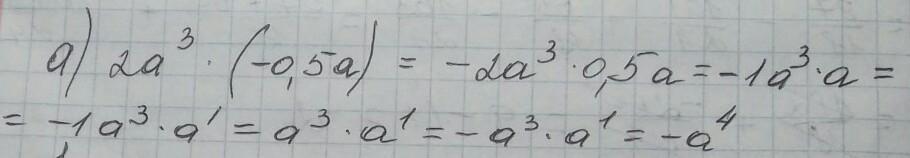 а) 2a³ · (-0,5a) = -2a³ · 0,5a = -1a³ · a =
= -1a³ · a¹ = a³ · a¹ = -a³ · a¹ = -a⁴